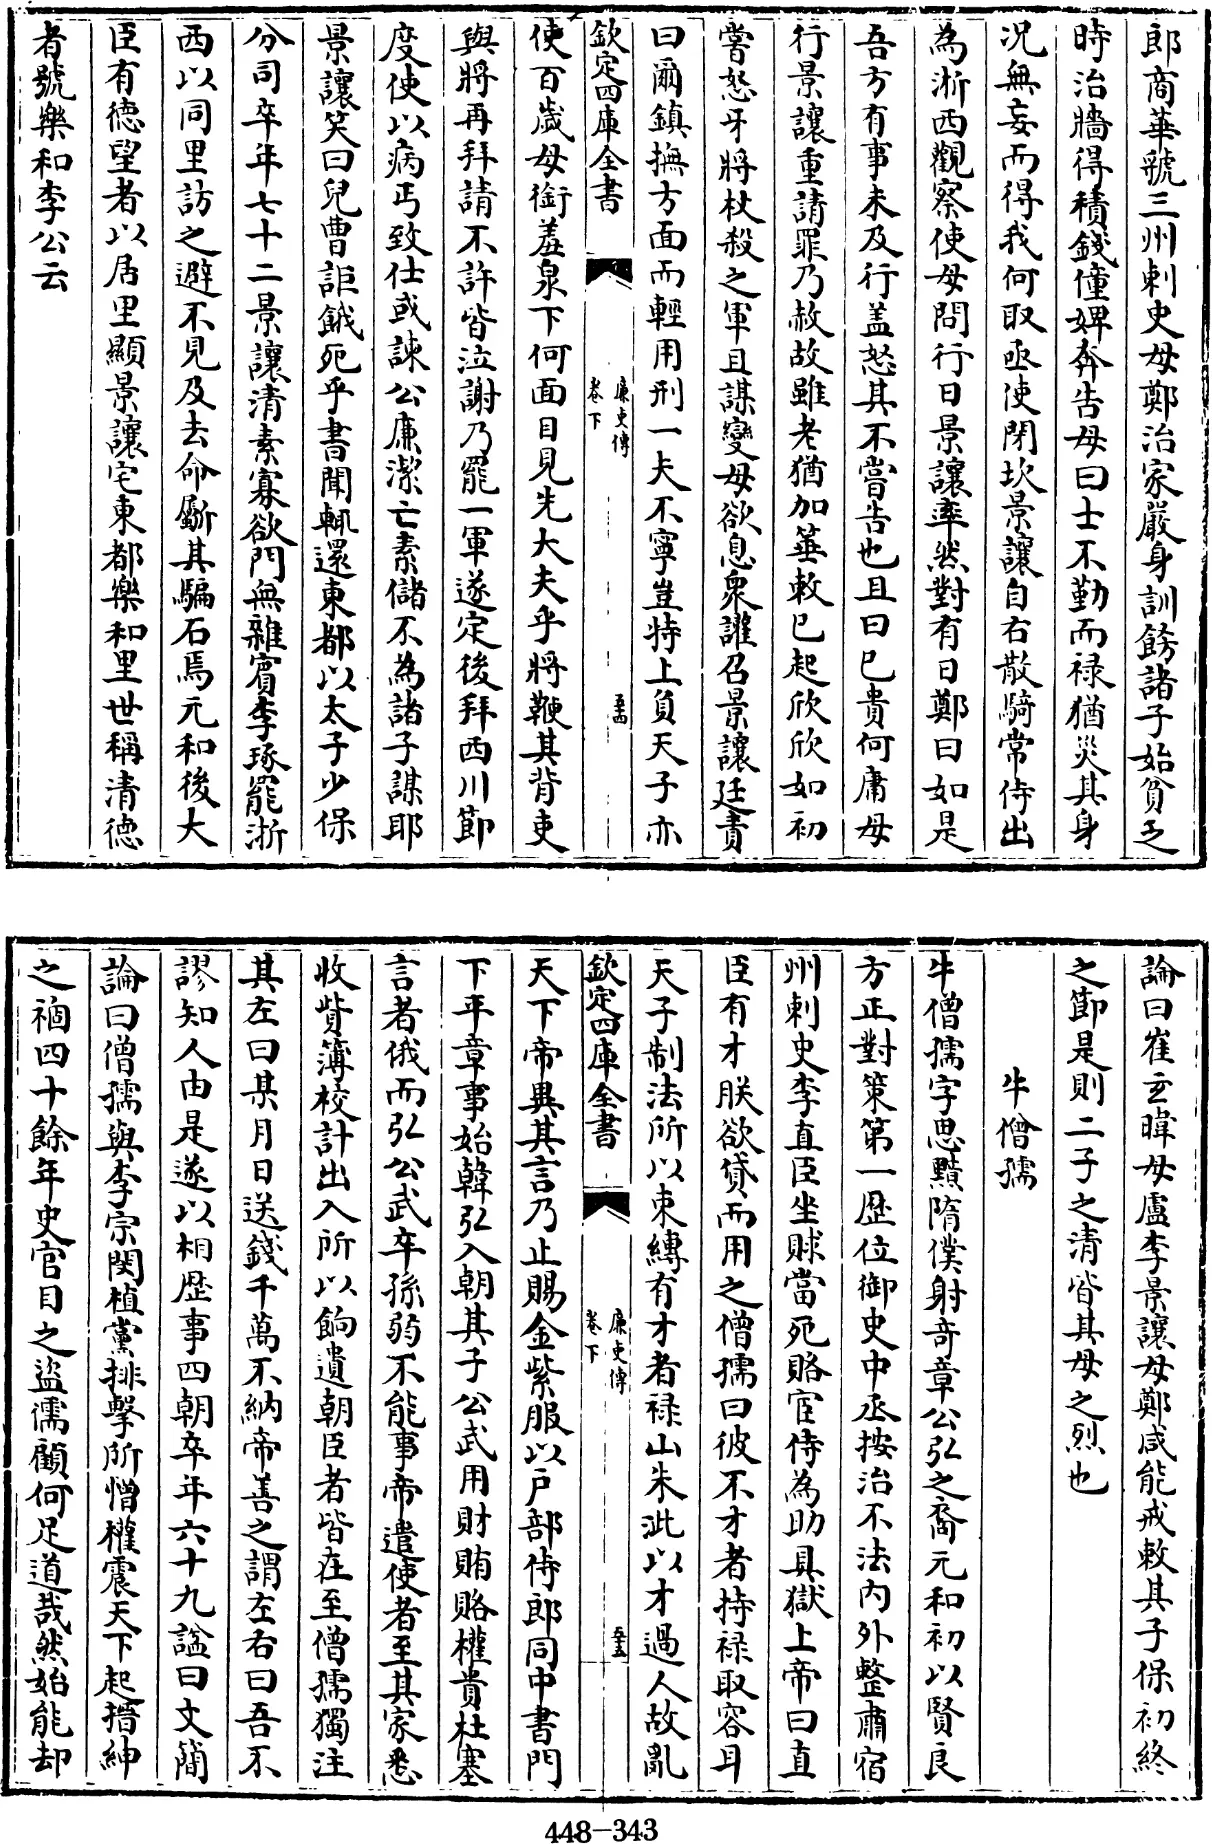 郎商華虢三州刺史母鄭治家嚴身訓飭諸子始貧乏
時治牆得積錢僮婢奔告母曰士不勤而禄猶災其身
况無妄而得我何取亟使閉坎景讓自右散騎常侍出
為浙西觀察使母問行日景讓率然對有日鄭曰如是
吾方有事未及行盖怒其不嘗告也且曰已貴何庸母
行景讓重請罪乃赦故雖老猶加箠敕已起欣欣如初
嘗怒牙將杖殺之軍且謀變母欲息衆讙召景讓廷責
曰爾鎮撫方面而輕用刑一夫不寧豈特上負天子亦
欽定四庫全書
廉吏傳
卷下
五十四
使百歲母銜羞泉下何面目見先大夫乎將鞭其背吏
與將再拜請不許皆泣謝乃罷一軍遂定後拜西川節
度使以病丐致仕或諫公廉潔亡素儲不為諸子謀耶
景讓笑曰兒曹詎餓死乎書聞輒還東都以太子少保
分司卒年七十二景讓清素寡欲門無雜賓李琢罷浙
西以同里訪之避不見及去命斸其騙石焉元和後大
臣有德望者以居里顯景讓宅東都樂和里世稱清德
者號樂和李公云
論曰崔玄暐母盧李景讓母鄭咸能戒敕其子保初終
之節是則二子之清皆其母之烈也
牛僧孺
牛僧孺字思黯隋僕射奇章公弘之裔元和初以賢良
方正對策第一歷位御史中丞按治不法内外整肅宿
州刺史李直臣坐賕當死賂宦侍為助具獄上帝曰直
臣有才朕欲貸而用之僧孺曰彼不才者持禄取容耳
天子制法所以束縛有才者禄山朱泚以才過人故亂
欽定四庫全書
廉吏傳
卷下
五十五
天下帝異其言乃止賜金紫服以户部侍郎同中書門
下平章事始韓弘入朝其子公武用財賄賂權貴杜塞
言者俄而弘公武卒孫弱不能事帝遣使者至其家悉
收貲簿校計出入所以餉遺朝臣者皆在至僧孺獨注
其左曰某月日送錢千萬不納帝善之謂左右曰吾不
謬知人由是遂以相歷事四朝卒年六十九諡曰文簡
論曰僧孺與李宗閔植黨排擊所憎權震天下起搢紳
之禍四十餘年史官目之盜儒顧何足道哉然始能却
448-343